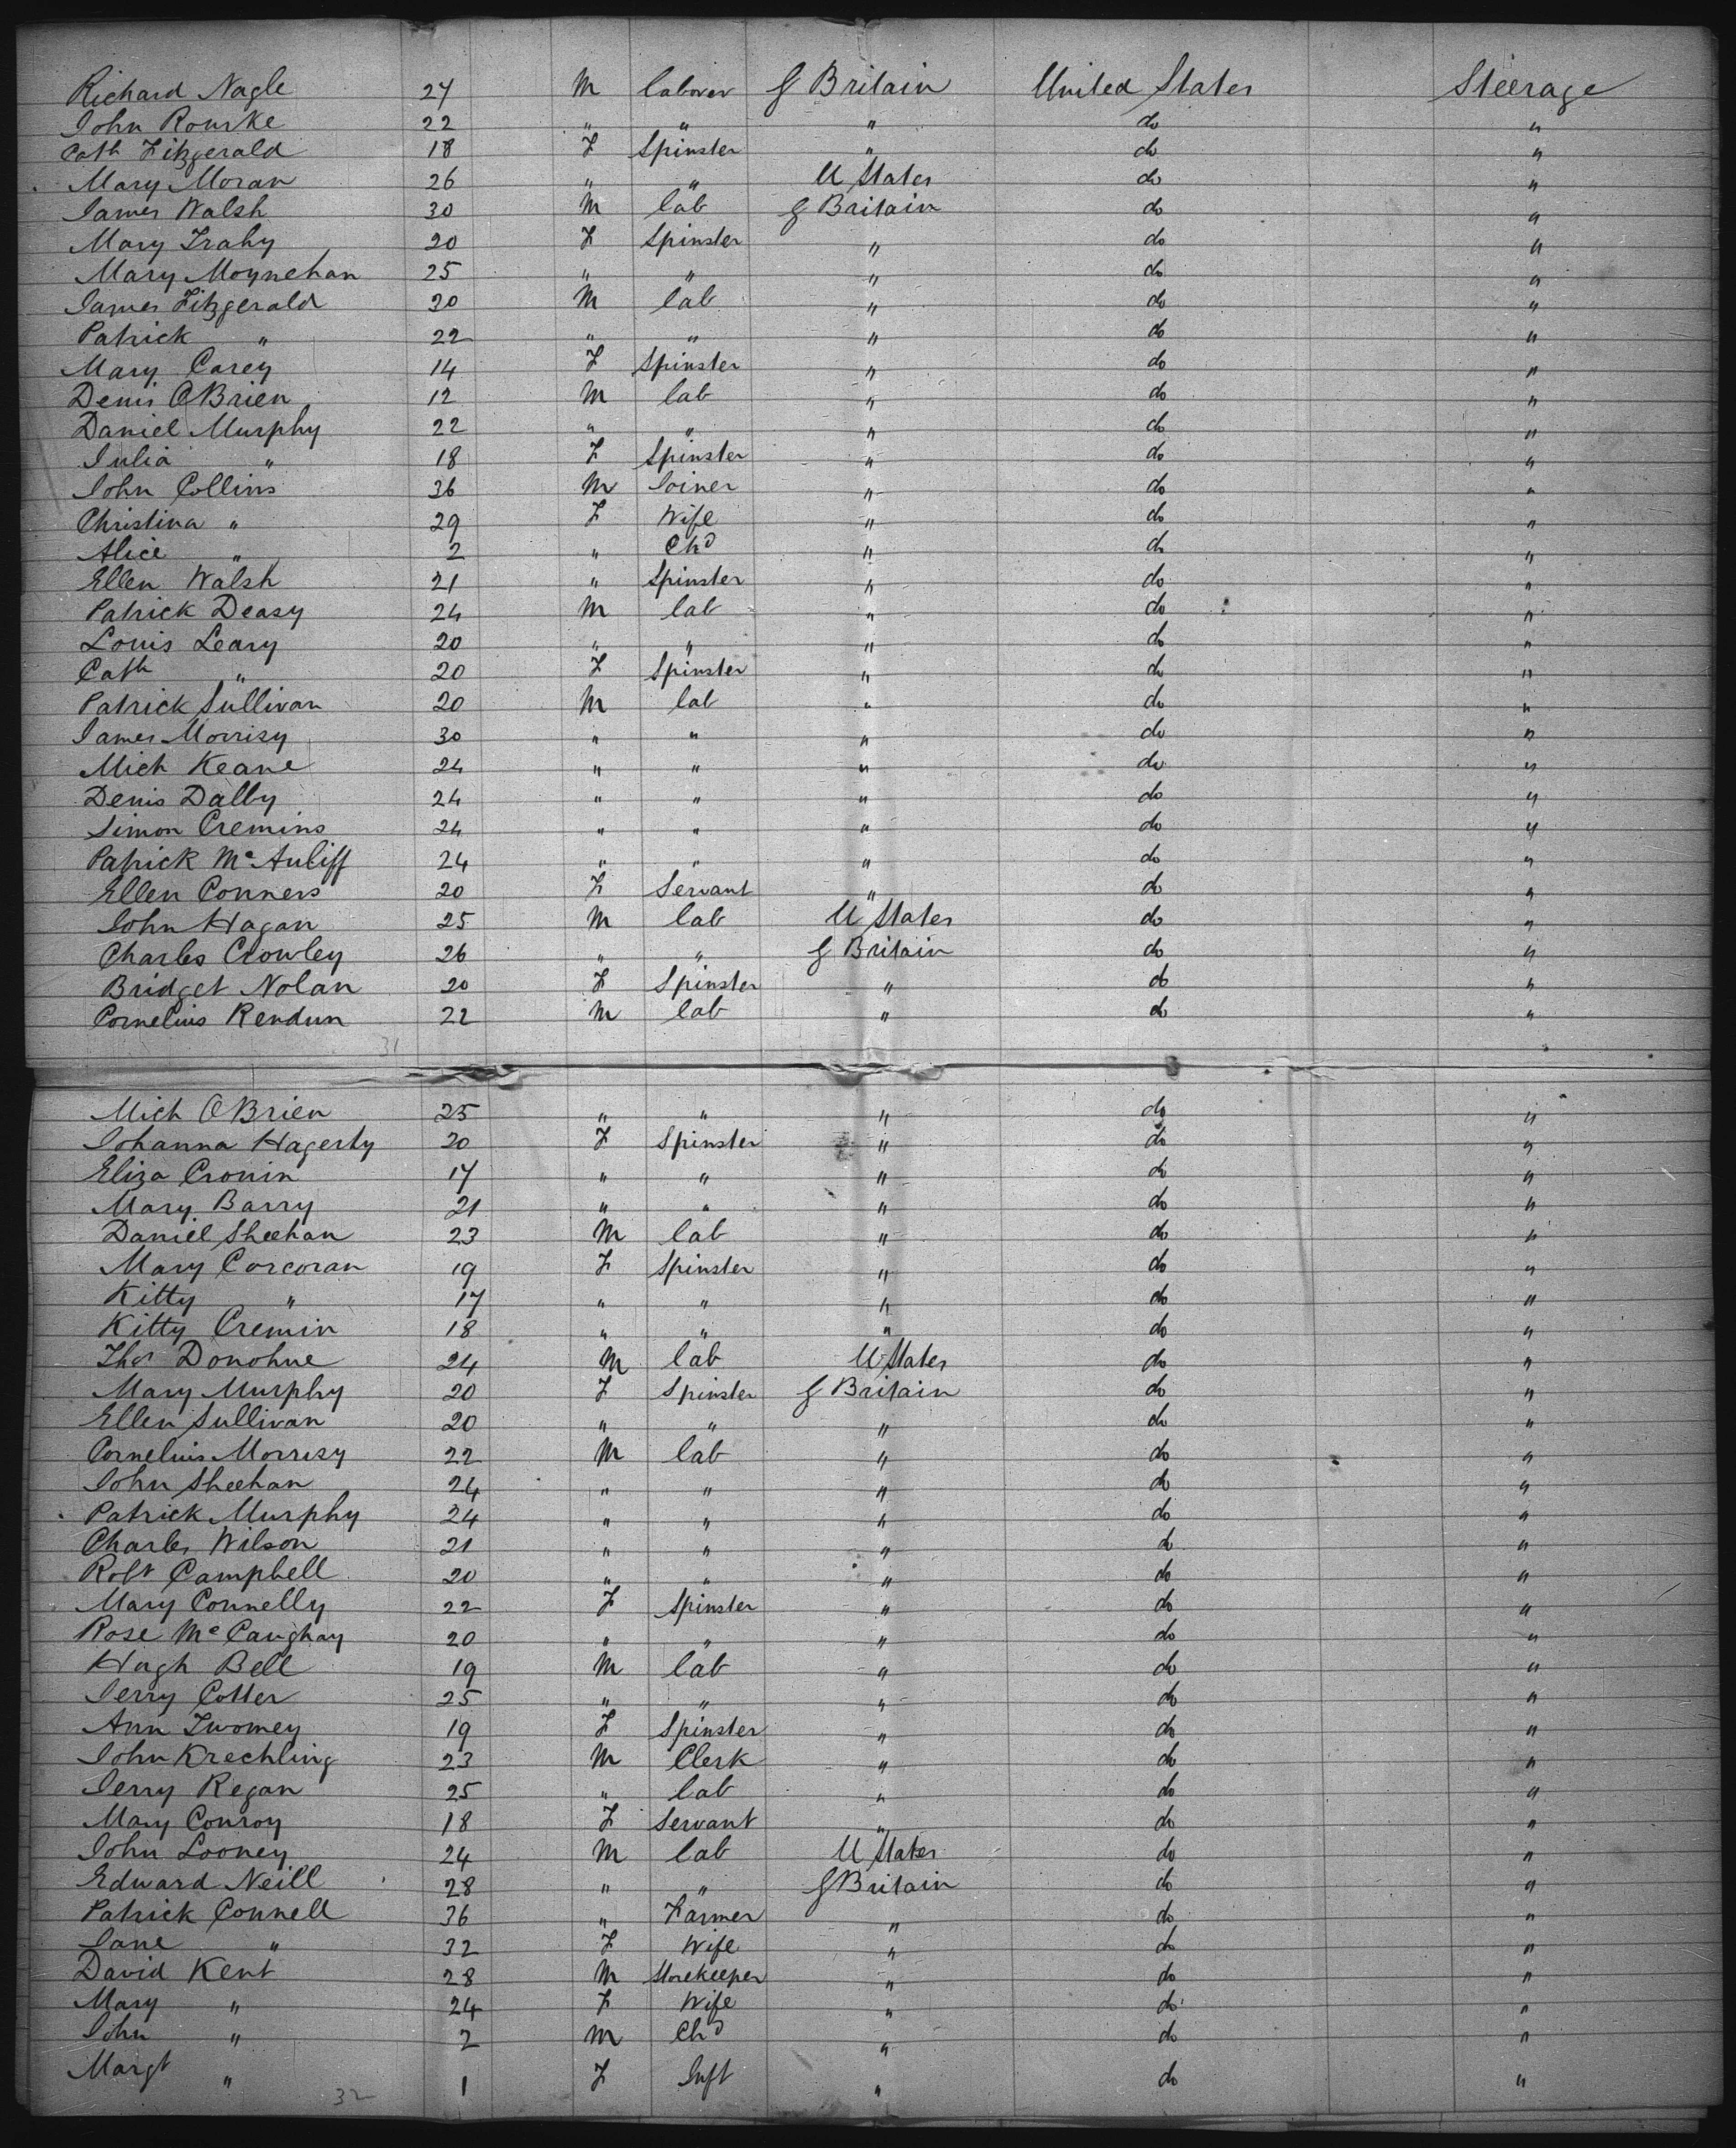 Richard Nagle 24 M laborer G Britain United States Steerage
John Rourke 22 " " " do "
Cath Fitzgerald 18 F Spinster " do "
Mary Moran 26 " " U States do "
James Walsh 30 M lab G Britain do "
Mary Trahy 20 F Spinster " do "
Mary Moynehan 25 " " " do "
James Fitzgerald 20 M lab " do "
Patrick " 22 " " " do "
Mary Carey 14 F Spinster " do "
Denis OBrien 12 M lab " do "
Daniel Murphy 22 " " " do "
Julia " 18 F Spinster " do "
John Collins 36 M Joiner " do "
Christina " 29 F Wife " do "
Alice " 2 " Chd " do "
Ellen Walsh 21 " Spinster " do "
Patrick Deasy 24 M lab " do "
Louis Leary 20 " " " do "
Cath " 20 F Spinster " do "
Patrick Sullivan 20 M lab " do "
James Morrisy 30 " " " do "
Mich Keane 24 " " " do "
Denis Dalby 24 " " " do "
Simon Cremins 24 " " " do "
Patrick Mc Auliff 24 " " " do "
Ellen Conners 20 F Servant " do "
John Hagan 25 M lab U States do "
Charles Crowley 26 " " G Britain do "
Bridget Nolan 20 F Spinster " do "
Cornelius Rendun 22 M lab " do "
31
Mich OBrien 25 " " " do "
Johanna Hagerty 20 F Spinster " do "
Eliza Cronin 17 " " " do "
Mary Barry 21 " " " do "
Daniel Sheehan 23 M lab " do "
Mary Corcoran 19 F Spinster " do "
Kitty " 17 " " " do "
Kitty Cremin 18 " " " do "
Thos Donohue 24 M lab U States do "
Mary Murphy 20 F Spinster G Britain do "
Ellen Sullivan 20 " " " do "
Cornelius Morrisy 22 M lab " do "
John Sheehan 24 " " " do "
Patrick Murphy 24 " " " do "
Charles Wilson 21 " " " do "
Robt Campbell 20 " " " do "
Mary Connelly 22 F Spinster " do "
Rose Mc Caughay 20 " " " do "
Hugh Bell 19 M lab " do "
Jerry Cotter 25 " " " do "
Ann Twomey 19 F Spinster " do "
John Krechling 23 M Clerk " do "
Jerry Regan 25 " lab " do "
Mary Conroy 18 F Servant " do "
John Looney 24 M lab U States do "
Edward Neill 28 " " G Britain do "
Patrick Connell 36 " Farmer " do "
Jane " 32 F Wife " do "
David Kent 28 M Storekeeper " do "
Mary " 24 F Wife " do "
John " 2 M Chd " do "
Margt " 1 F Inft " do "
32